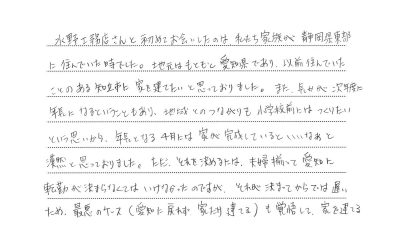 水野工務店さんと初めてお会いしたのは私たち家族が静岡県東部
に住んでいた時でした。地元はもともと愛知県であり、以前住んでいた
ことのある知立市に家を建てたいと思っておりました。また、長女が次年度に
年長になるということもあり、地域とのつながりも小学校前にはつくりたい
という思いから、年長となる4月には家が完成しているといいなあと
漠然と思っておりました。ただ、それを決めるには、夫婦揃って愛知に
転勤が決まらなくてはいけなかったのですが、それが決まってからでは遅い
ため、最悪のケース(愛知に戻れず家だけ建てる)も覚悟して、家を建てる